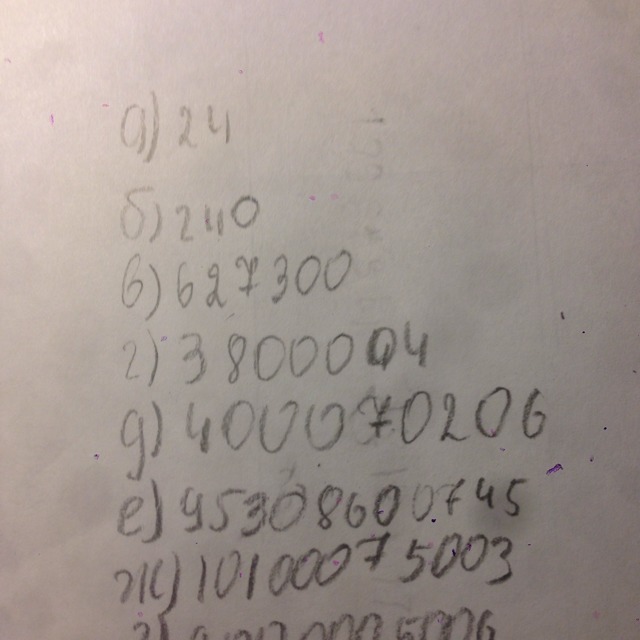 а) 24
б) 240
в) 627300
г) 3800004
д) 400070206
е) 95308600745
ж) 101000075003